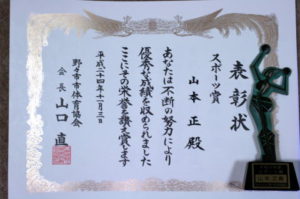 表彰状
スポーツ賞
山本 正 殿
あなたは不断の努力により
優秀な成績を収められました
ここにその栄誉を讃え賞します
平成二十四年十一月三日
野々市市体育協会
会長 山口 直